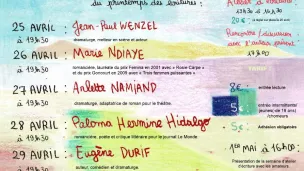 du printemps des écritures :
25 AVRIL : Jean-Paul WENZEL
à 19h30
dramaturge, metteur en scène et acteur
26 AVRIL : Marie NDIAYE
à 19h30
romancière, lauréate du prix Femina en 2001 avec « Rosie Carpe »
et du prix Goncourt en 2009 avec « Trois femmes puissantes »
27 AVRIL : Arlette NAMIAND
à 19h30
dramaturge, adaptatrice de roman pour le théâtre.
28 AVRIL : Paloma Hermine Hidalgo
à 19h30
romancière, poète et critique littéraire pour le journal Le Monde
29 AVRIL : Eugène DURIF
à 19h30
auteur, comédien et dramaturge.
20€
Rencontre / discussion
avec l'auteur présent
à 19h30
8€ entrée lecture
5€ entrée intermittents
(jeunes de 18 ans)
/chômeurs
5€ Adhésion obligatoire
1er MAI à 16h00 :
Présentation de la semaine d'atelier
d'écriture avec les amateurs.